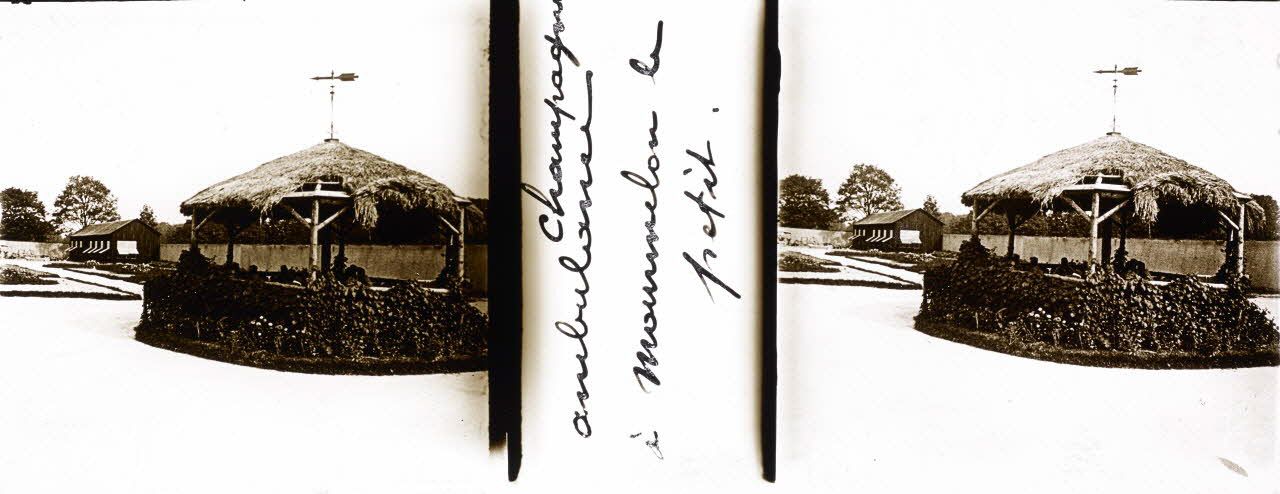 Champagne
ambulance
à Mourmelon le
petit.